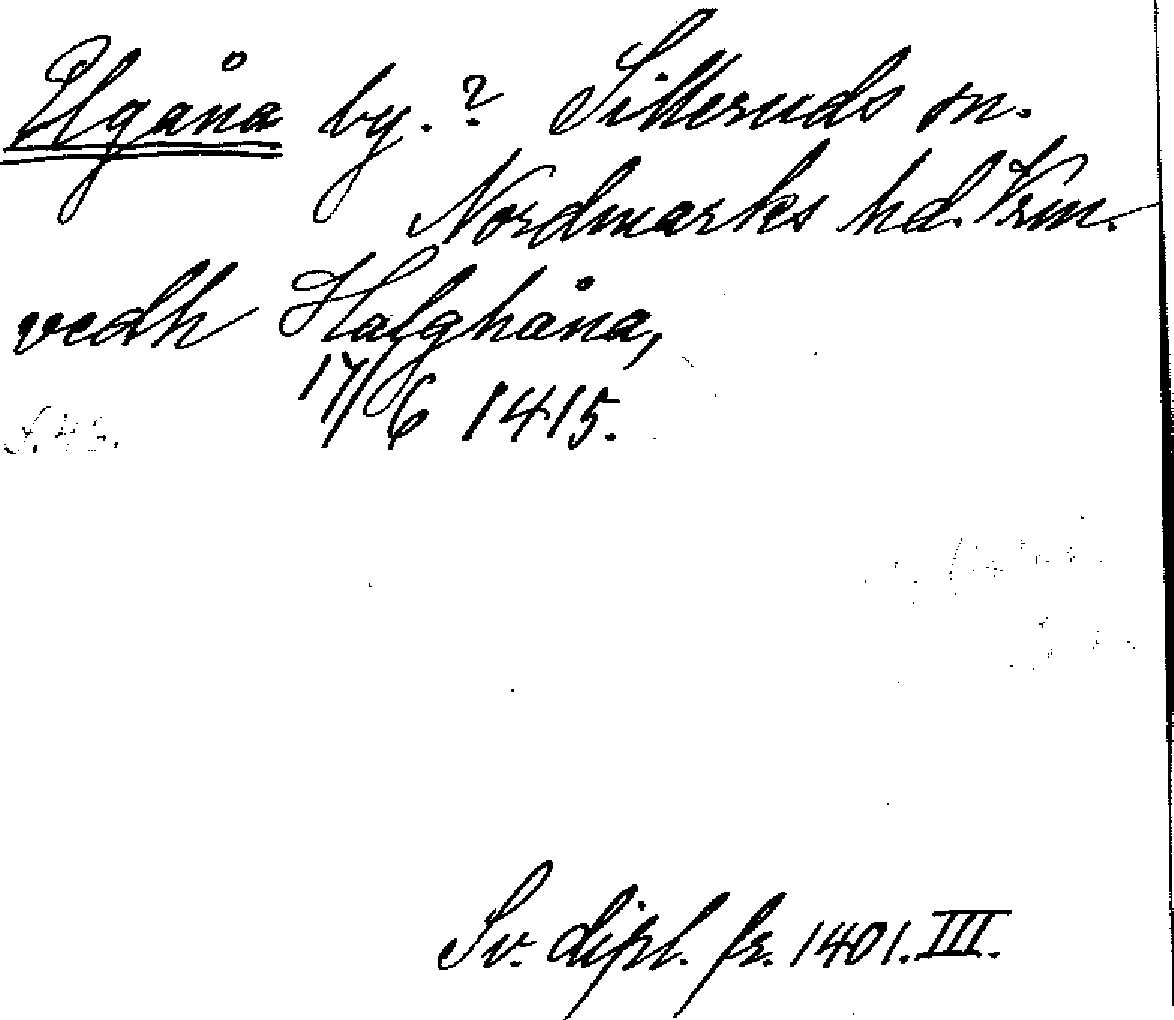 Elgåna by.? Silleruds sn.
Nordmarks hd. Vrm.
vedh Halghåna,
17/6 1415.
S. 43.
Sv. dipl. fr. 1401. III.